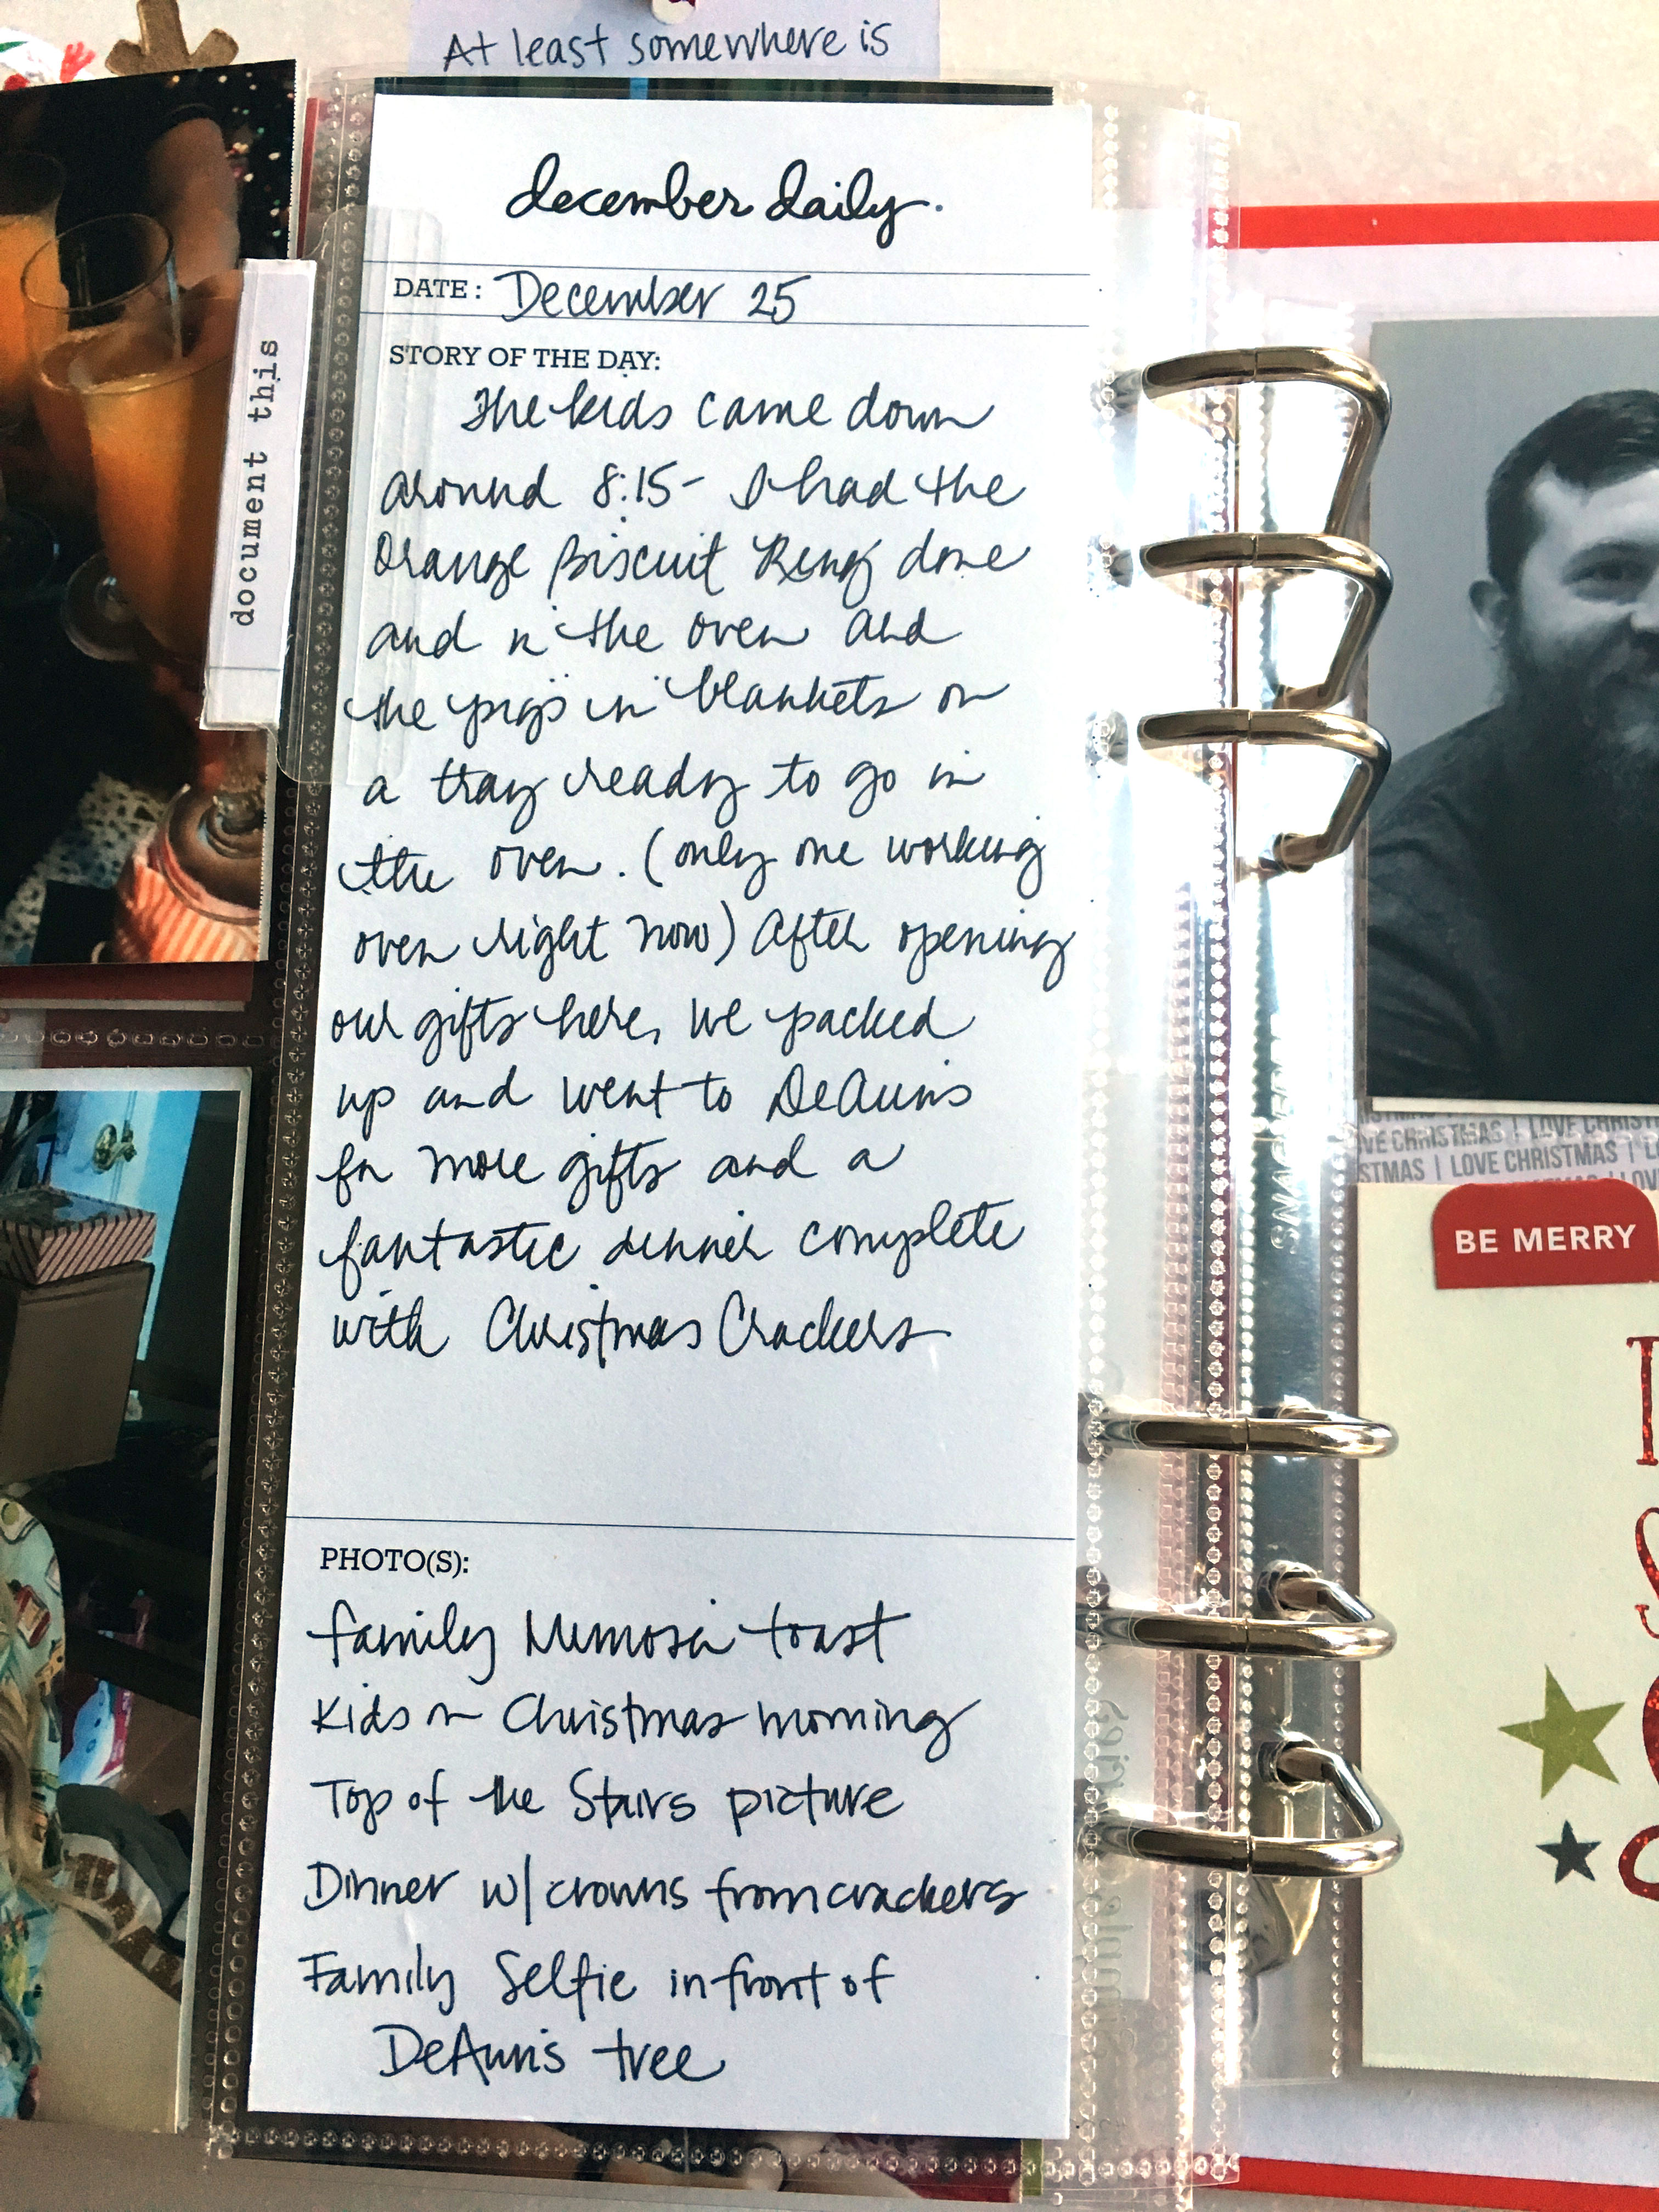 At least somewhere is
december daily.
DATE: December 25
STORY OF THE DAY:
The kids came down
around 8:15- I had the
Orange Biscuit Ring done
and in the oven and
the "pigs in" blankets on
a tray ready to go in
the oven. (only one working
oven right now) After opening
our gifts here, we packed
up and went to DeAnn's
for more gifts and a
fantastic dinner complete
with Christmas Crackers
PHOTO(S):
family Mimosa toast
Kids on Christmas morning
Top of the Stairs picture
Dinner w/ crowns from crackers
Family Selfie in front of
DeAnn's tree
document this
VE CHRISTMAS | LOVE CHRIST
STMAS | LOVE CHRISTMAS | LO
BE MERRY